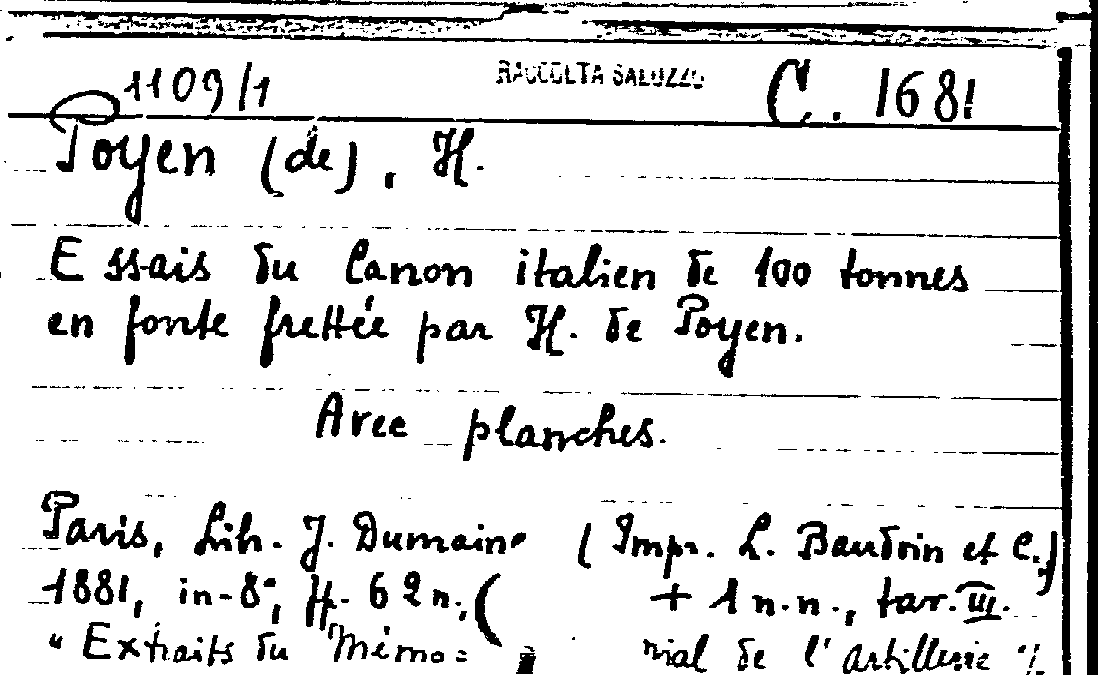 1109/1 RACCOLTA SALUZZO C. 1681
Poyen (de), H.
Essais du Canon italien de 100 tonnes
en fonte frettée par H. de Poyen.
Avec planches.
Paris, Lib. J. Dumaine (Impr. L. Baudoin et C.)
1881, in-8°, ff. 62 n., ( + 1 n.n., tav. III.
" Extraits du Mémo= rial de l'artillerie "/.